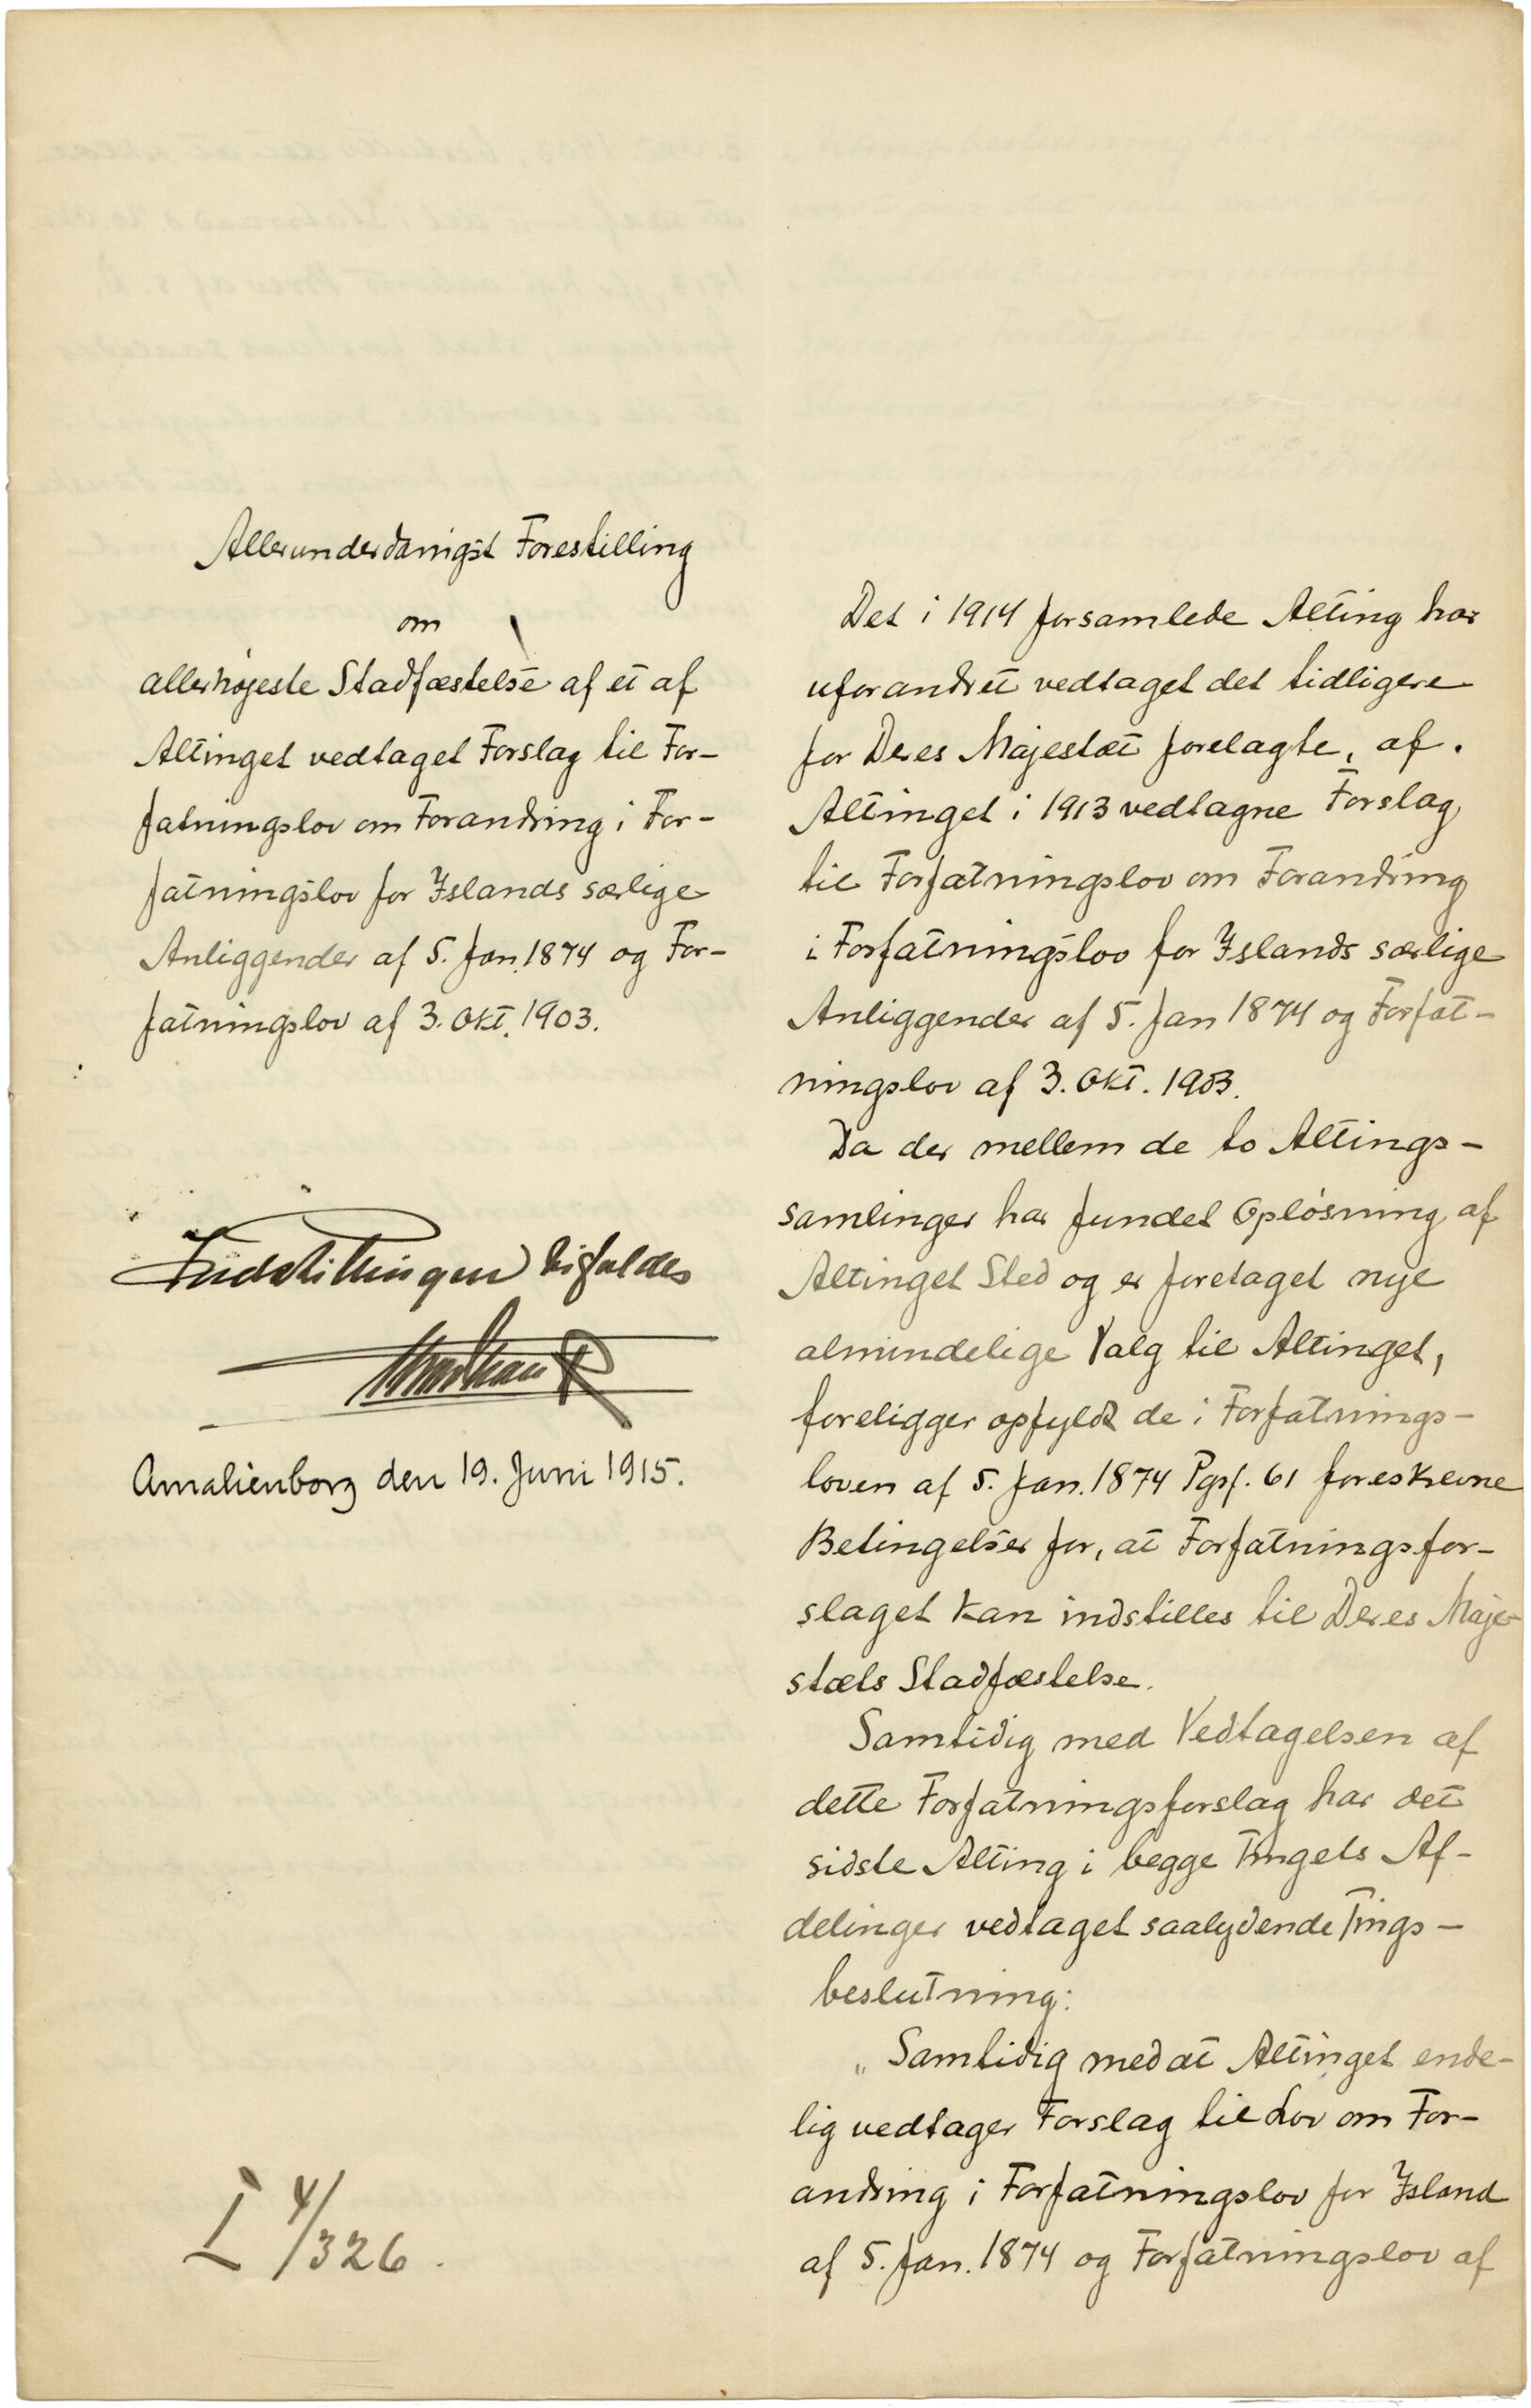 Allerunderdanigst Forestilling
om
allerhøjeste Stadfæstelse af et af
Altinget vedtaget Forslag til For-
fatningslov om Forandring i For-
fatningslov for Islands særlige
Anliggender af 5. Jan. 1874 og For-
fatningslov af 3. Okt. 1903.
Indstillingen bifaldes
Christian R
Amalienborg den 19. Juni 1915.
I 4/326.
Det i 1914 forsamlede Alting har
uforandret vedtaget det tidligere
for Deres Majestæt forelagte, af.
Altinget i 1913 vedtagne Forslag
til Forfatningslov om Forandring
i Forfatningslov for Islands særlige
Anliggender af 5. Jan 1874 og Forfat-
ningslov af 3. Okt. 1903.
Da der mellem de to Altings-
samlinger har fundet Opløsning af
Altinget Sted og er foretaget nye
almindelige Valg til Altinget,
foreligger opfyldt de i Forfatnings-
loven af 5. Jan. 1874 Pgrf. 61 foreskrevne
Betingelser for, at Forfatningsfor-
slaget kan indstilles til Deres Maje-
stæts Stadfæstelse.
Samtidig med Vedtagelsen af
dette Forfatningsforslag har det
sidste Alting i begge Tingets Af-
delinger vedtaget saalydende Tings-
beslutning:
„Samtidig med at Altinget ende-
lig vedtager Forslag til Lov om For-
andring i Forfatningslov for Island
af 5. Jan. 1874 og Forfatningslov af